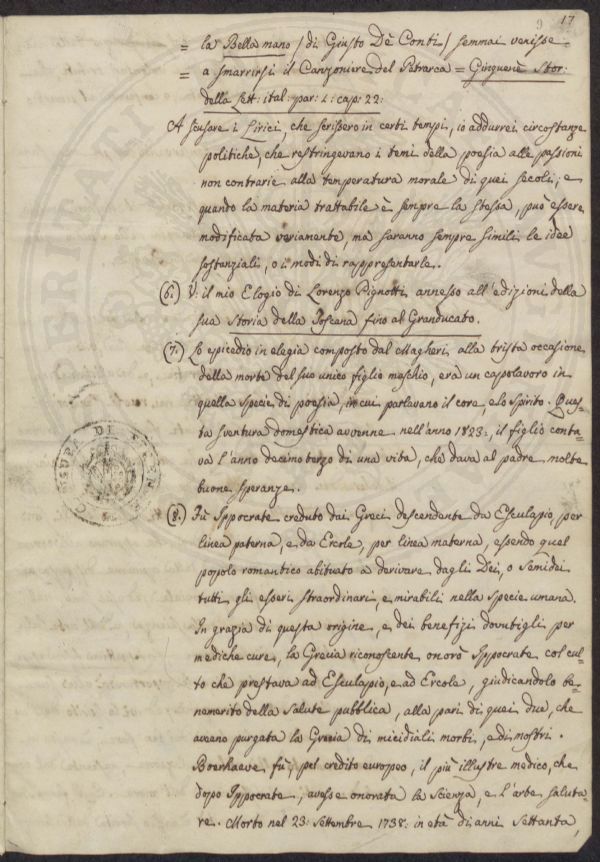 9 17
= la Bella mano / di Giusto De Conti / semmai venisse
= a smarrirsi il Canzoniere del Petrarca = Ginguenè Stor:
della Lett: ital. par: 1: cap: 22:
A scusare i Lirici, che scrissero in certi tempi, io addurrei circostanze
politiche, che restringevano i temi della poesia alle passioni
non contrarie alla temperatura morale di quei secoli; e
quando la materia trattabile è sempre la stessa, può essere
modificata variamente, ma saranno sempre simili le idee
sostanziali, o i modi di rappresentarle.
(6.) V: il mio Elogio di Lorenzo Pignotti, annesso all'edizioni della
sua Storia della Toscana fino al Granducato.
(7.) Lo epicedio in elegia composto dal Magheri alla trista occasione
della morte del suo unico figlio maschio, era un capolavoro in
quella specie di poesia, in cui parlavano il core, e lo spirito. Ques-
ta sventura domestica avvenne nell'anno 1823:, il figlio conta-
va l'anno decimoterzo di una vita, che dava al padre molte
buone speranze.
(8.) Fù Ippocrate creduto dai Greci descendente da Esculapio, per
linea paterna, e da Ercole, per linea materna, essendo quel
popolo romantico abituato a derivare dagli Dei, o Semidei
tutti gli esseri straordinari, e mirabili nella specie umana.
In grazia di questa origine, e dei benefizi dovutigli per
mediche cure, la Grecia riconoscente onorò Ippocrate col cul-
to che prestava ad Esculapio, e ad Ercole, giudicandolo be-
nemerito della salute pubblica, alla pari di quei due, che
aveano purgata la Grecia di micidiali morbi, e di mostri.
Boerhaeve fù, pel credito europeo, il più illustre medico, che
dopo Ippocrate, avesse onorata la Scienza, e l'arte saluta-
re. Morto nel 23: Settembre 1738: in età di anni settanta,